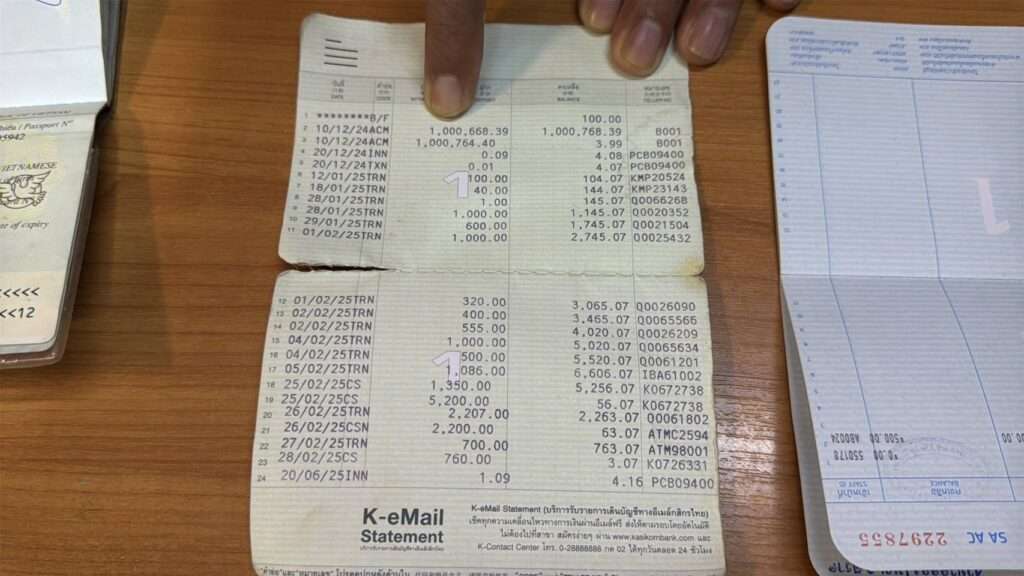 Passport Nº
VIETNAMESE
of expiry
<<<<<
<<<12
วันที่
DATE
BALANCE
1 ********B/F 100.00
2 10/12/24ACM 1,000,668.39 1,000,768.39 B001
3 10/12/24ACM 1,000,764.40 3.99 B001
4 20/12/24INN 0.09 4.08 PCB09400
5 20/12/24TXN 0.01 4.07 PCB09400
6 12/01/25TRN 100.00 104.07 KMP20524
7 18/01/25TRN 40.00 144.07 KMP23143
8 28/01/25TRN 1.00 145.07 Q0066268
9 28/01/25TRN 1,000.00 1,145.07 Q0020352
10 29/01/25TRN 600.00 1,745.07 Q0021504
11 01/02/25TRN 1,000.00 2,745.07 Q0025432
1
12 01/02/25TRN 320.00 3,065.07 Q0026090
13 02/02/25TRN 400.00 3,465.07 Q0065566
14 02/02/25TRN 555.00 4,020.07 Q0026209
15 04/02/25TRN 1,000.00 5,020.07 Q0065634
16 04/02/25TRN 500.00 5,520.07 Q0061201
17 05/02/25TRN 1,086.00 6,606.07 IBA61002
18 25/02/25CS 1,350.00 5,256.07 K0672738
19 25/02/25CS 5,200.00 56.07 K0672738
20 26/02/25TRN 2,207.00 2,263.07 O0061802
21 26/02/25CSN 2,200.00 63.07 ATMC2594
22 27/02/25TRN 700.00 763.07 ATM98001
23 28/02/25CS 760.00 3.07 K0726331
24 20/06/25INN 1.09 4.16 PCB09400
1
K-eMail
Statement
บริการรับรายการเดินบัญชีทางอีเมล์กสิกรไทย
K-eMail Statement (บริการรับรายการเดินบัญชีทางอีเมล์กสิกรไทย)
เช็คทุกความเคลื่อนไหวทางการเงินผ่านอีเมล์ฟรี ส่งให้ตามรอบโดยอัตโนมัติ
ไม่ต้องไปที่สาขา สมัครง่ายๆ ผ่าน www.kasikornbank.com และ
K-Contact Center โทร. 0-28888888 กด 02 ได้ทุกวันตลอด 24 ชั่วโมง
1
*500.00 AB0024
*0.00 550178
คงเหลือ
BALANCE
เจ้าหน้าที่
STAFF ID
SA AC 2297855